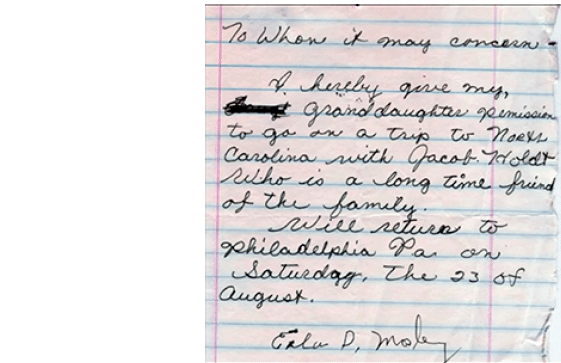 To Whon it may concern -
I hereby give my,
Granddaughter pemission
to go on a trip to North
Carolina with Jacob Holdt
Who is a long time friend
of the family.
Will return to
philadelphia Pa on
Saturday, The 23 of
August.
D, Mobley